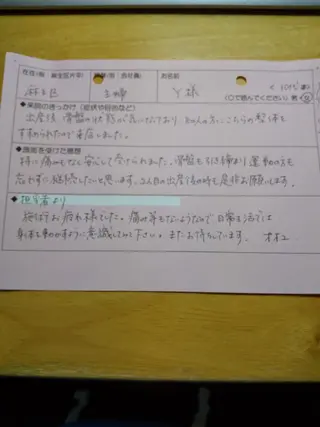 在住(例 麻生区片平) 職業(例 会社員) お名前
麻生区 主婦 Y 様 (30代)
(○で囲んでください) 男・女
◆来院のきっかけ(症状や目的など)
出産後 骨盤の状態が
こちらの整体を
すすめられたので来店しました。
◆施術を受けた感想
特に痛みもなく安心して受けられました。骨盤も引き締まり運動の方も
忘れずに継続したいと思います。2人目の出産後の時も是非お願いします。
◆担当者より
お疲れ様でした。痛み等もないようなので日常生活では
体を動かすように意識してみて下さい。またお待ちしています。